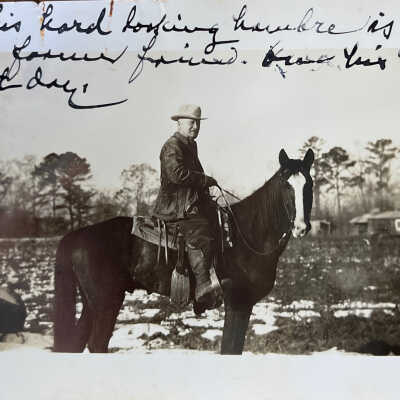 is hard looking hombre is
former friend. his
day.